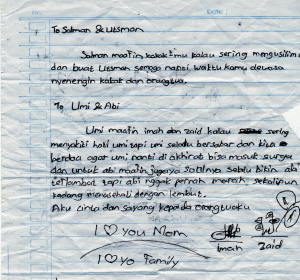 To Salman & Utsman
Salman maafin kakak²mu kalau sering mengusilim
dan buat Utsman semoga nanti waktu kamu dewasa
nyenengin kakak dan orangtua.
To Umi & Abi
Umi maafin imah dan zaid kalau sering
menyakiti hati umi tapi umi selalu bersabar dan bisa
berdoa agar umi nanti di akhirat bisa masuk surga
dan untuk abi maafin jugaya soalnya selalu bikin abi
terlambat tapi abi nggak pernah marah sekalipun
kadang menasehati dengan lembut.
Aku cinta dan sayang kepada orangtuaku
I ♡ you Mom
Imah Zaid
I ♡ yo Family